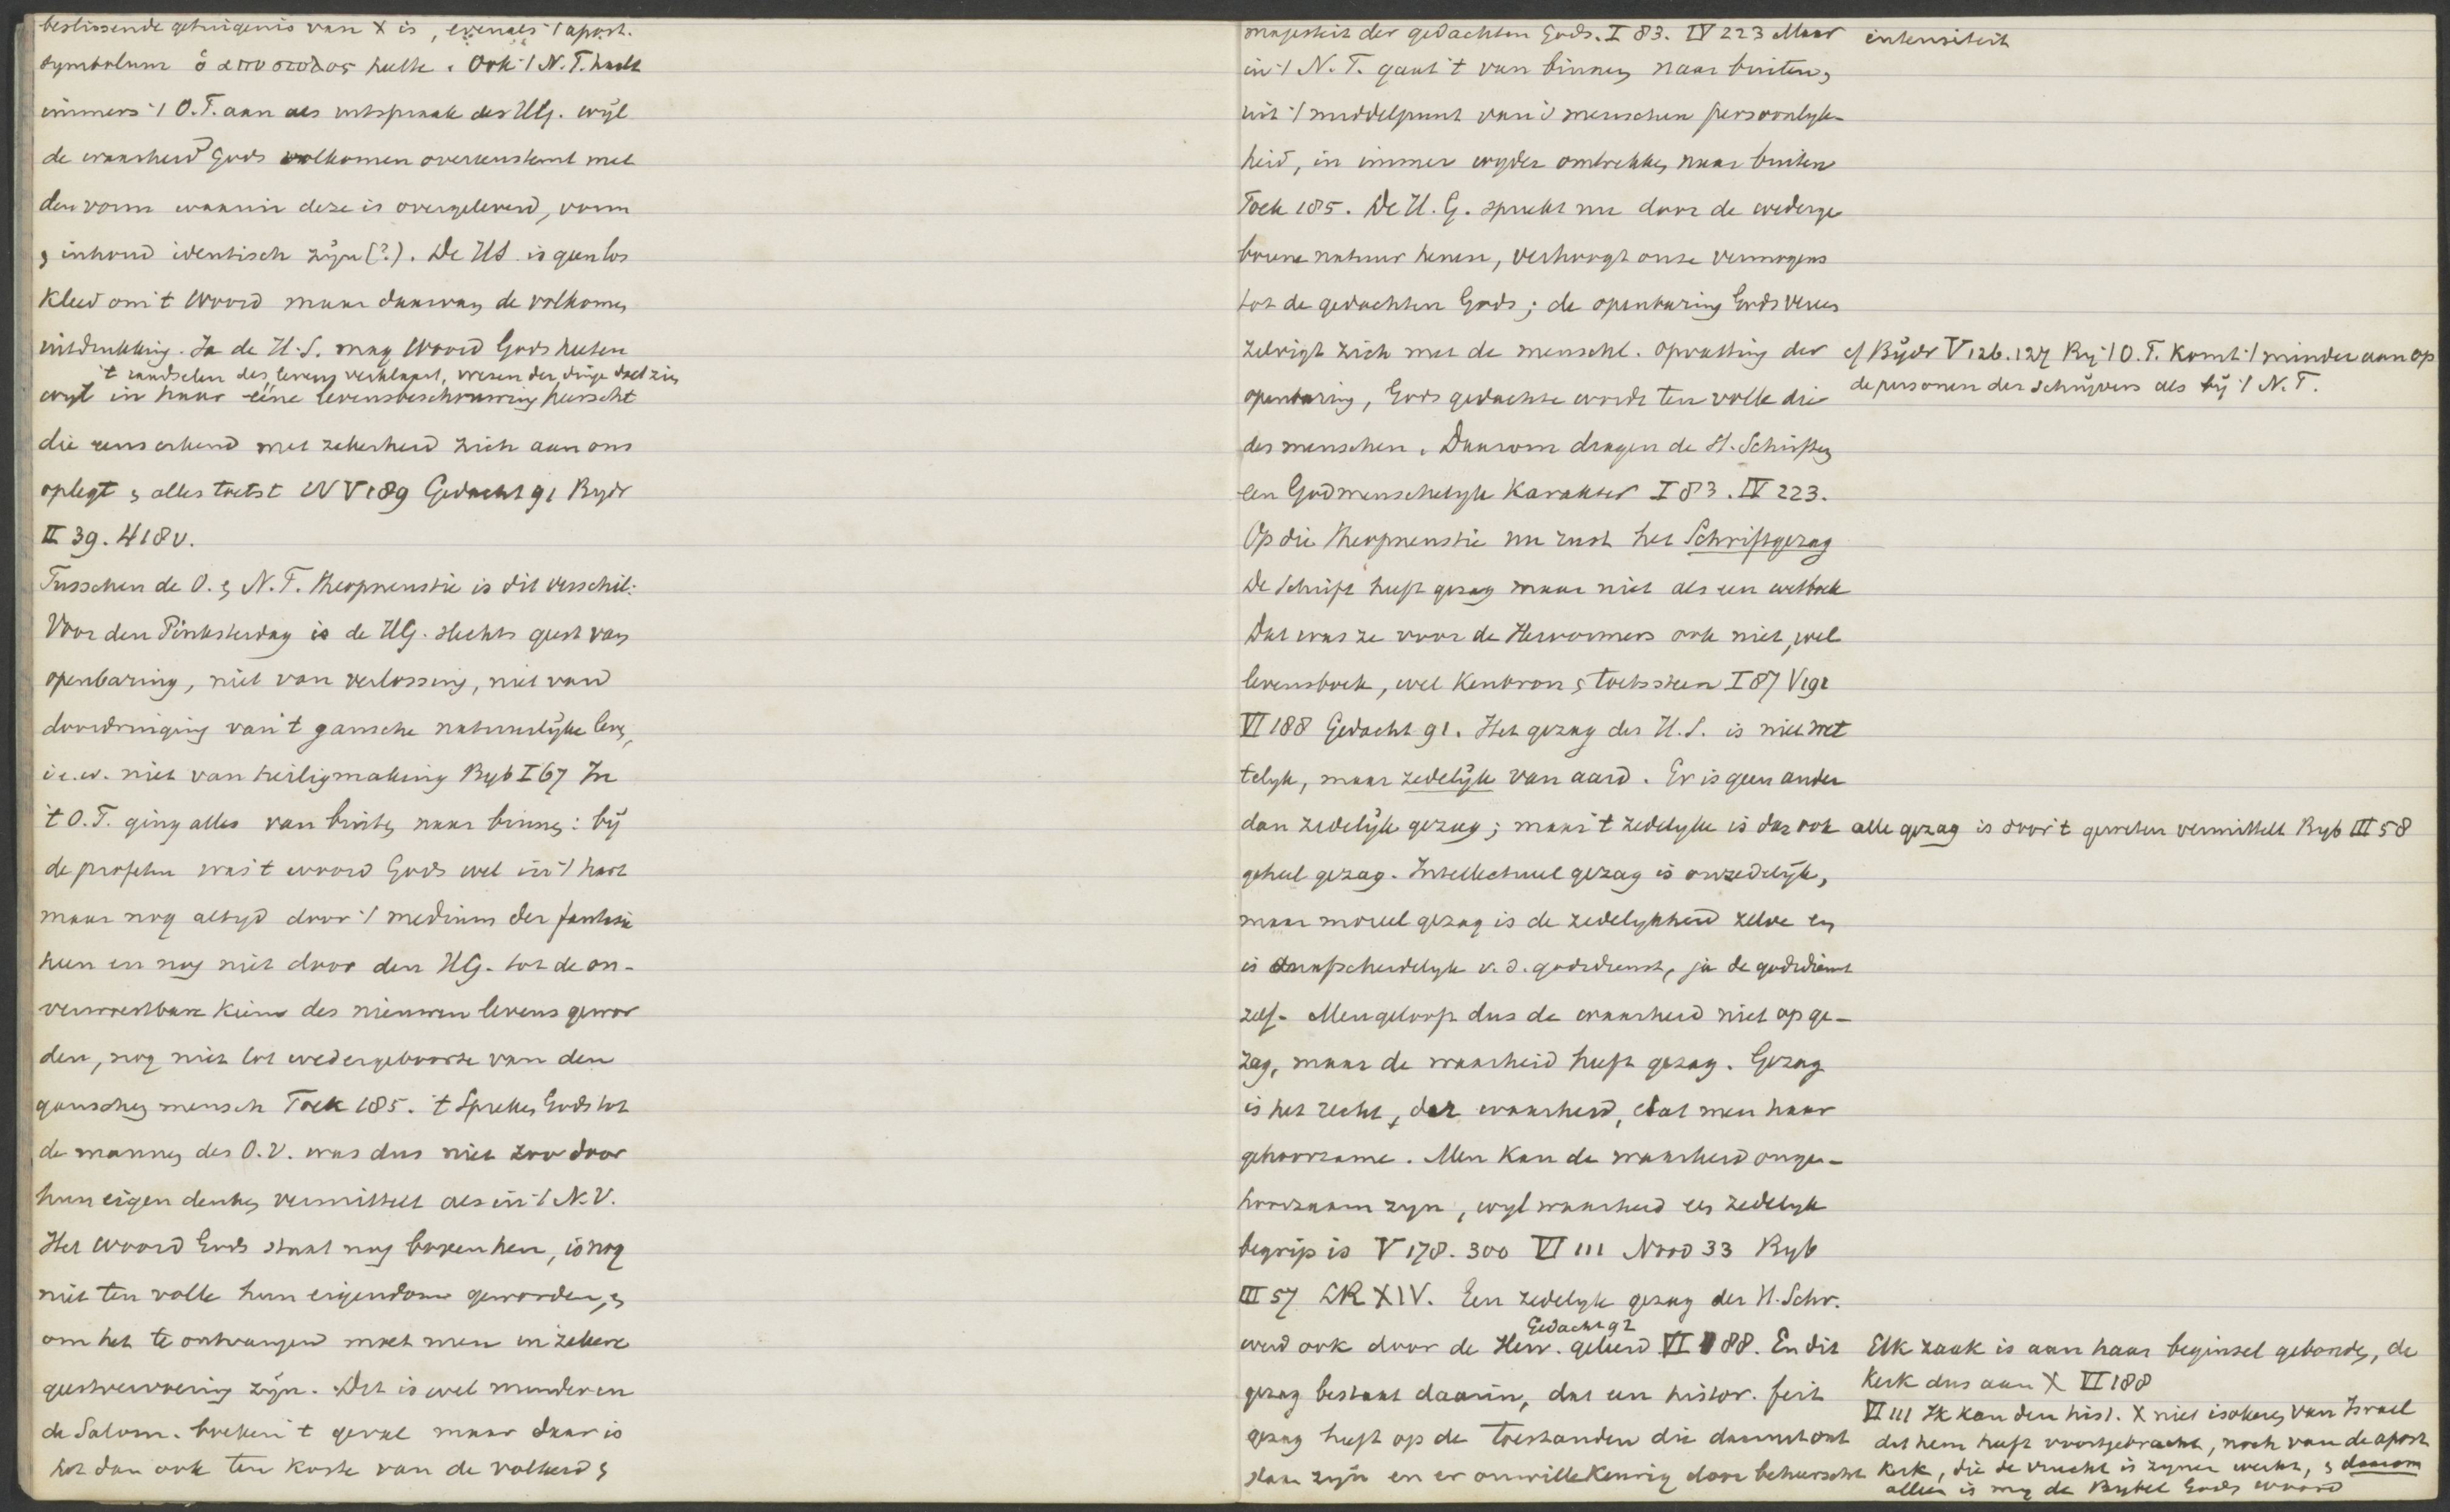 beslissende getuigenis van X is, evenals 't apost.
symbolum ὁ αποστολος heette. Ook 't N.T. haalt
immers 't O.T. aan als uitspraak des HG. wijl
de waarheid Gods volkomen overeenstemt met
den vorm waarin deze is overgeleverd, vorm
& inhoud identisch zijn (?). De HS is geen los
kleed om 't Woord maar daarvan de volkomen
uitdrukking. Ja de H.S. mag Woord Gods heeten
't raadselen des levens verklaart, wezen der dinge doet zien
wijl in haar ééne levensbeschouwing heerscht
die eens erkend met zekerheid zich aan ons
oplegt & alles toetst WV V 189 Gedacht 91 Bydr
II 39. 418v.
Tusschen de O. & N.T. theopneustie is dit verschil:
Voor den Pinksterdag is de HG. slechts geest van
openbaring, niet van verlossing, niet van
doordringing van 't gansche natuurlijke leven,
i.e.w. niet van heiligmaking Byb I 67 In
't O.T. ging alles van buiten naar binnen: bij
de profeten was 't woord Gods wel in 't hart
maar nog altyd door 't medium der fantasie
heen en nog niet door den HG. tot de on-
verwoestbare kiem des nieuwen levens gewor
den, nog niet tot wedergeboorte van den
ganschen mensch Toek 185. 't Spreken Gods tot
de mannen des O.V. was dus niet zoo door
hun eigen denken vermittelt als in 't N.V.
Het woord Gods staat nog boven hen, is nog
niet ten volle hun eigendom geworden, &
om het te ontvangen moet men in zekere
geestvervoering zijn. Dit is wel minder in
de Salom. boeken 't geval maar daar is
het dan ook ten koste van de volheid &
majesteit der gedachten Gods. I 83. IV 223 Maar
in 't N.T. gaat 't van binnen naar buiten,
uit 't middelpunt van 's menschen persoonlyk-
heid, in immer wyder omtrekken naar buiten
Toek 185. De H.G. spreekt nu door de wederge
borene natuur henen, verhoogt onze vermogens
tot de gedachten Gods; de openbaring Gods veree
zelvigt zich met de menschl. opvatting der
openbaring, Gods gedachte wordt ten volle die
des menschen. Daarom dragen de H. Schriften
een Godmenschelyk karakter I 83. IV 223.
Op die theopneustie nu rust het Schriftgezag
De Schrift heeft gezag maar niet als een wetboek
Dat was ze voor de Hervormers ook niet, wel
levensboek, wel kenbron & toetssteen I 87 V 191
VI 188 Gedacht 91. Het gezag der H.S. is niet wet
telyk, maar zedelijk van aard. Er is geen ander
dan zedelijk gezag; maar 't zedelyke is dan ook
geheel gezag. Intellectueel gezag is onzedelijk,
maar moreel gezag is de zedelykheid zelve en
is onafscheidelyk v.d. godsdienst, ja de godsdienst
zelf. Men gelooft dus de waarheid niet op ge-
zag, maar de waarheid heeft gezag. Gezag
is het recht, der waarheid, dat men haar
gehoorzame. Men kan de waarheid onge-
hoorzaam zyn, wyl waarheid een zedelyk
begrip is V 178. 300 VI 111 Nood 33 Byb
III 57 LR XIV. Een zedelyk gezag der H. Schr.
Gedacht 92
werd ook door de Herv. geleerd VI 188. En dit
gezag bestaat daarin, dat een histor. feit
gezag heeft op de toestanden die daaruit ont
staan zyn en er onwillekeurig door beheerscht
intensiteit
cf Bijdr V 126. 127 By 't O.T. komt 't minder aan op
de personen der schrijvers als bij 't N.T.
alle gezag is door 't geweten vermittelt Byb III 58
Elk zaak is aan haar beginsel gebonden, de
kerk dus aan X VI 188
VI 111 Ik kan den hist. X niet isoleren van Israel
dat hem heeft voortgebracht, noch van de apost
kerk, die de vrucht is zyner werk, & daarom
alleen is my de Bybel Gods woord